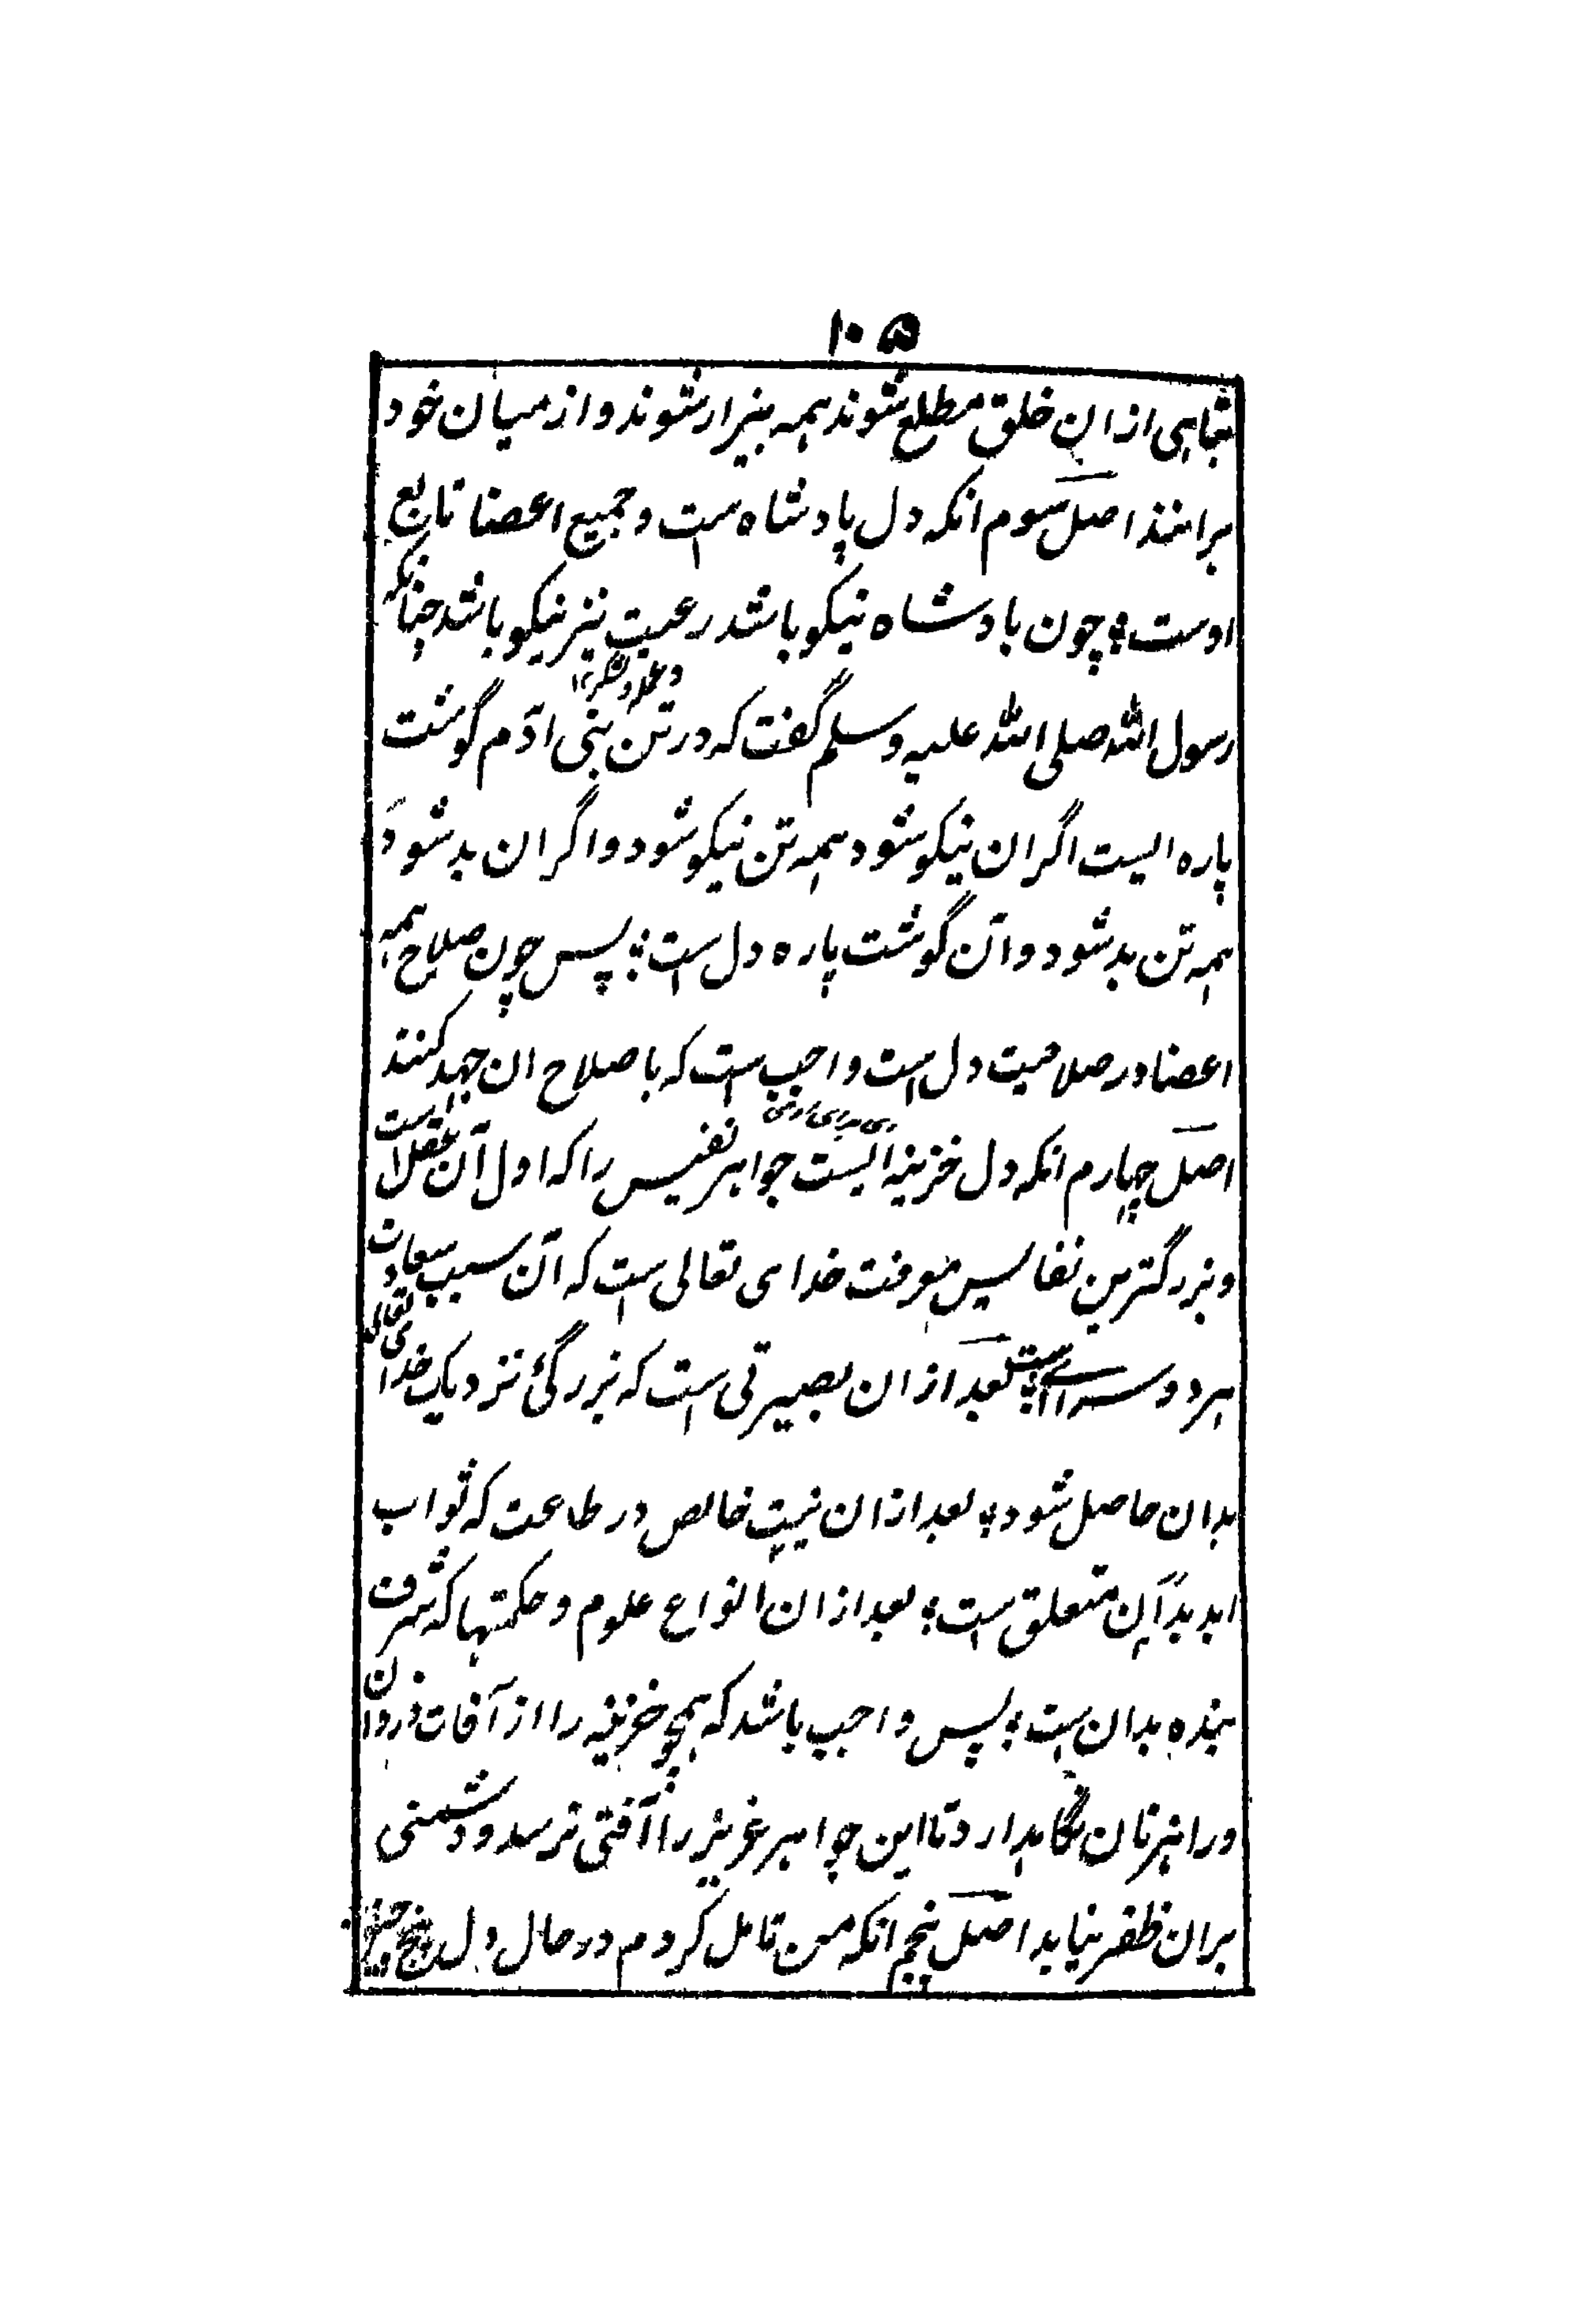 ۱۰۵
بتباهی ازان خلق مطلع شوند همه بیزار شوند و از میان خود
برانند اصل سوم انکه دل پادشاه ست و جمیع اعضا تابع
اوست ؛ چون بادشاه نیکو باشد رعیت نیز نیکو باشد چنانکه
رسول الله صلی الله علیه وسلم گفت که در تن بنی آدم گوشت
پاره ایست اگر ان نیکو شود همه تن نیکو شود و اگر ان بد شود
همه تن بد شود و آن گوشت پاره دل ست ؛ پس چون صلاح همه
اعضا در صلاحیت دل است واجب ست که باصلاح ان جهد کنند
اصل چهارم انکه دل خزینه ایست جواهر نفیس را که اول آن عقل است
و بزرگترین نفایس معرفت خدای تعالی ست که آن سبب سعادت
هر دو سراے است ؛ بعد ازان بصیرتی است که بزرگئ نزدیک خدای تعالی
بدان حاصل شود ؛ بعد ازان نیت خالص در طاعت که ثواب
ابد بدآن متعلق ست ؛ بعد ازان انواع علوم و حکمتها که شرف
بنده بدان ست ؛ پس واجب باشد که همچو خزینه را از آفات دزدان
و راهزنان نگاهدارد تا این جواهر عزیز را آفتی نرسد و دشمنی
بران ظفر نیابد اصل پنجم انکه من تامل کردم در حال دل پنج چیز